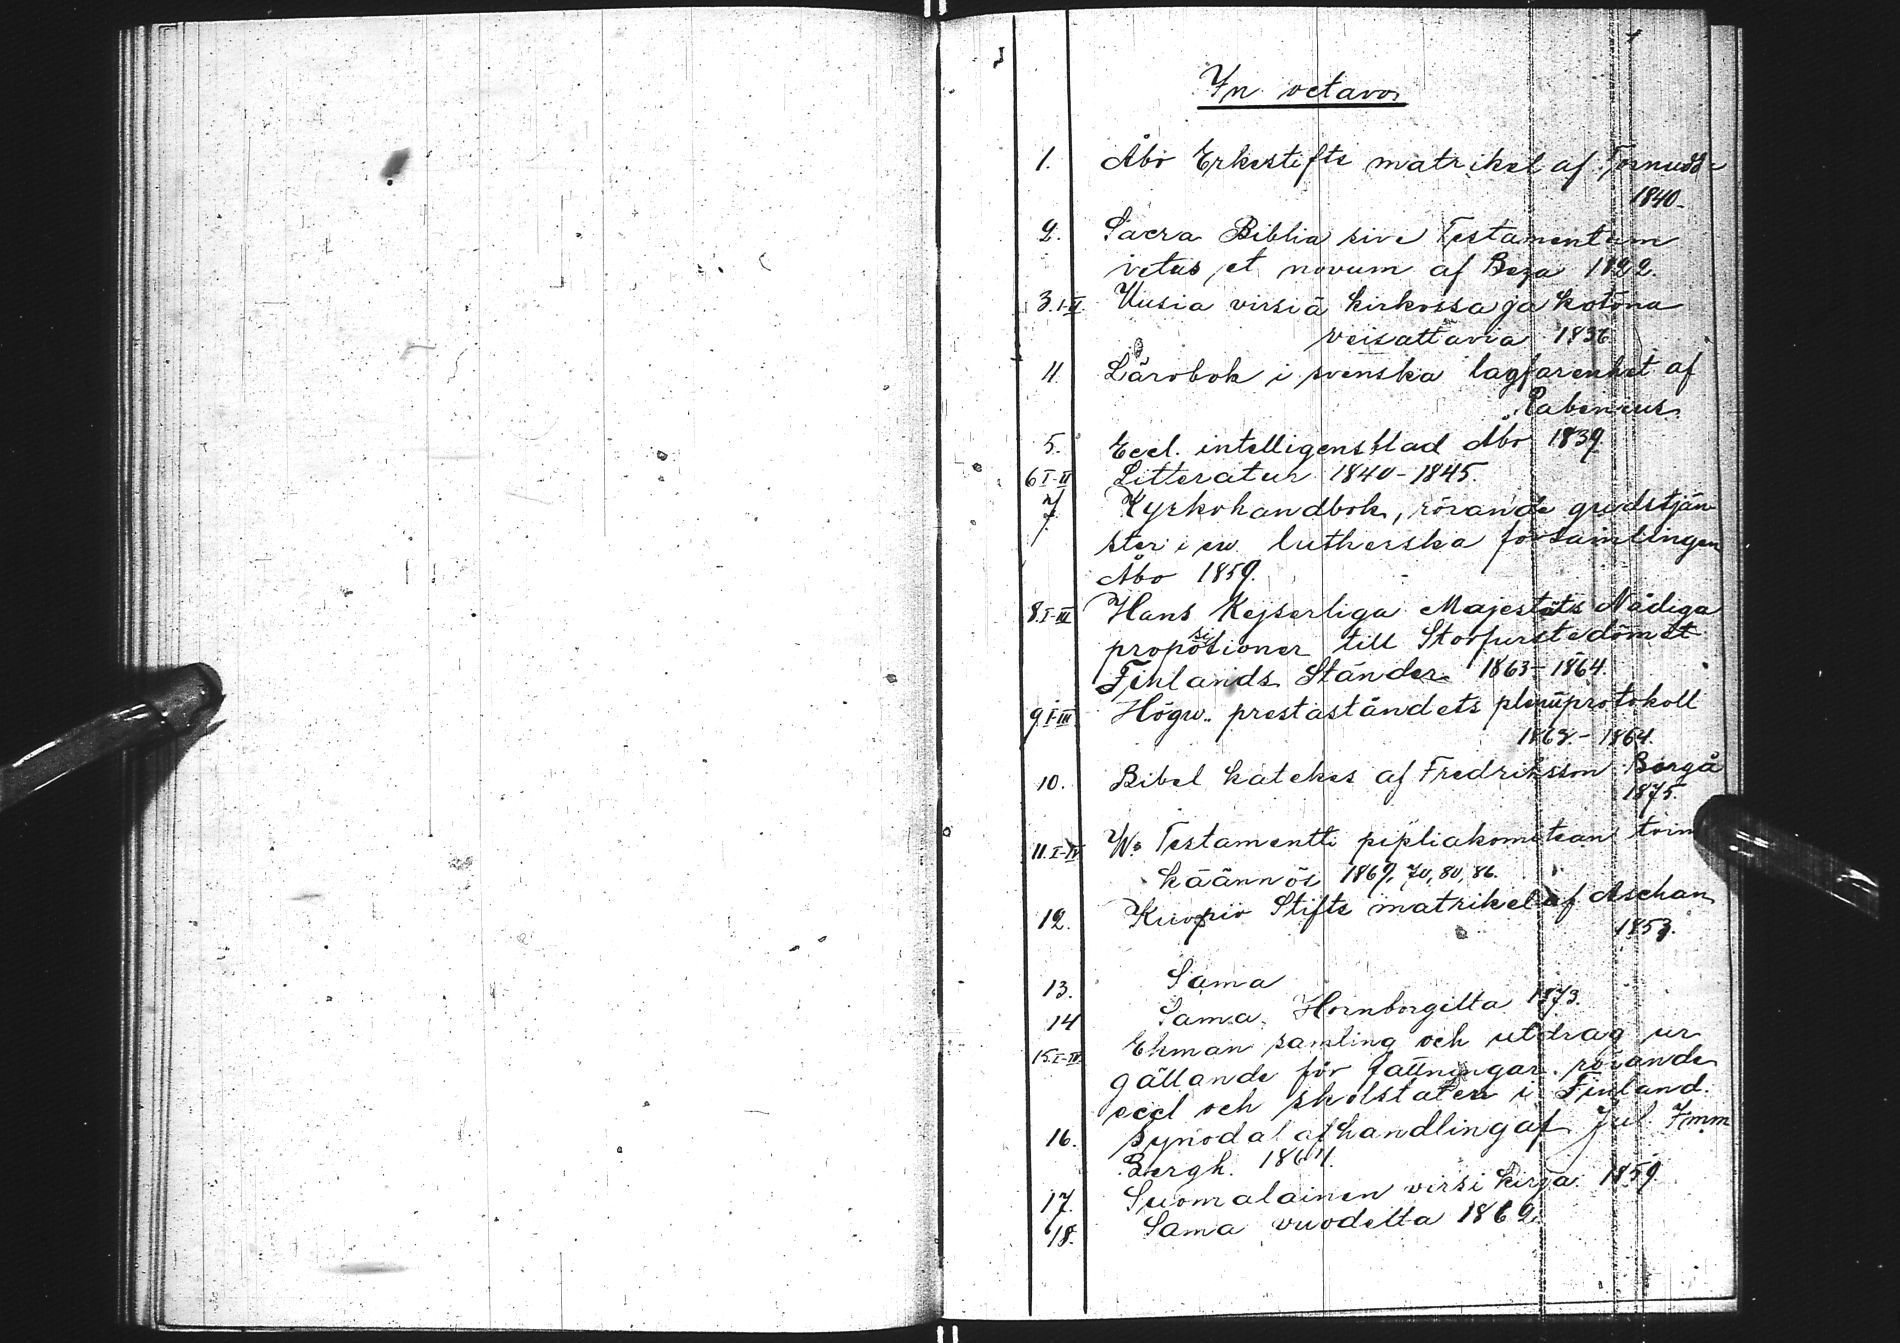 In octavo
1. Åbo Erkestifts matrikel af Törnudd
1840.
2. Sacra Biblia sive Testamentum
vetus et novum af Beza 1822.
3. I-II. Uusia virsiä kirkossa ja kotona
veisattavia 1836
4. Lärobok i svenska lagfarenhet af
Rabenius.
5. Eccl. intelligensblad Åbo 1839
6 I-II Litteratur 1840-1845.
7 Kyrkohandbok, rörande gudstjän
ster i ev. lutherska församlingen
Åbo 1859.
8. I-III Hans Kejserliga Majestäts Nådiga
propositioner till Storfurstedömet
Finlands Ständer 1863-1864.
9 I-III Högv. preståståndets plenaprotokoll
1863.-1864.
10. Bibel katekes af Fredriksson Borgå
1875.
11. I-IV W. Testamentti pipliakomitean toim
käännös 1869, 70, 80, 86.
12. Kuopio Stifts matrikel af Aschan
1853.
13. Sama
14 Sama, Hornborgilta 1873.
15. I-IV Ekman samling och utdrag ur
gällande författningar rörande
eccl och skolstaten i Finland.
16. Synodal afhandling af Jul Imm
Bergh. 1864.
17. Suomalainen virsi kirja 1859
18. Sama vuodelta 1862.